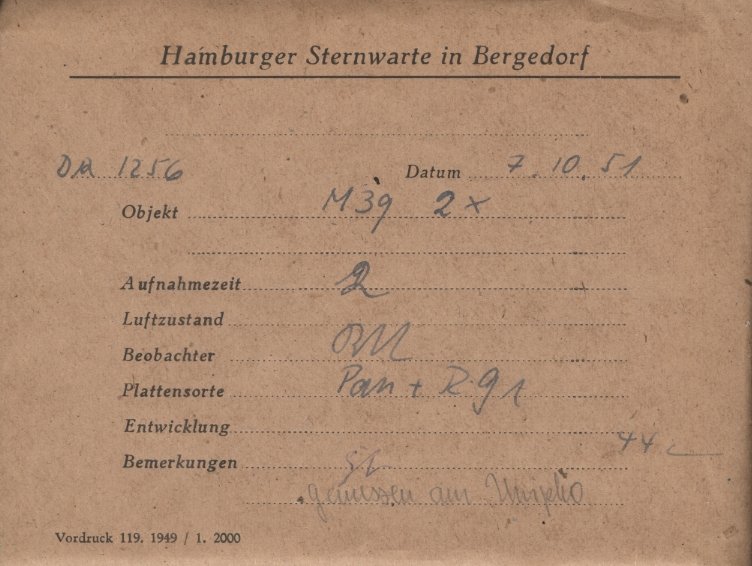 Hamburger Sternwarte in Bergedorf
DR 1256 Datum 7.10.51
Objekt M39 2x
Aufnahmezeit 2
Luftzustand
Beobachter
Plattensorte Pan + R.g1
Entwicklung
44
Bemerkungen
gemessen am
Vordruck 119. 1949 / 1. 2000